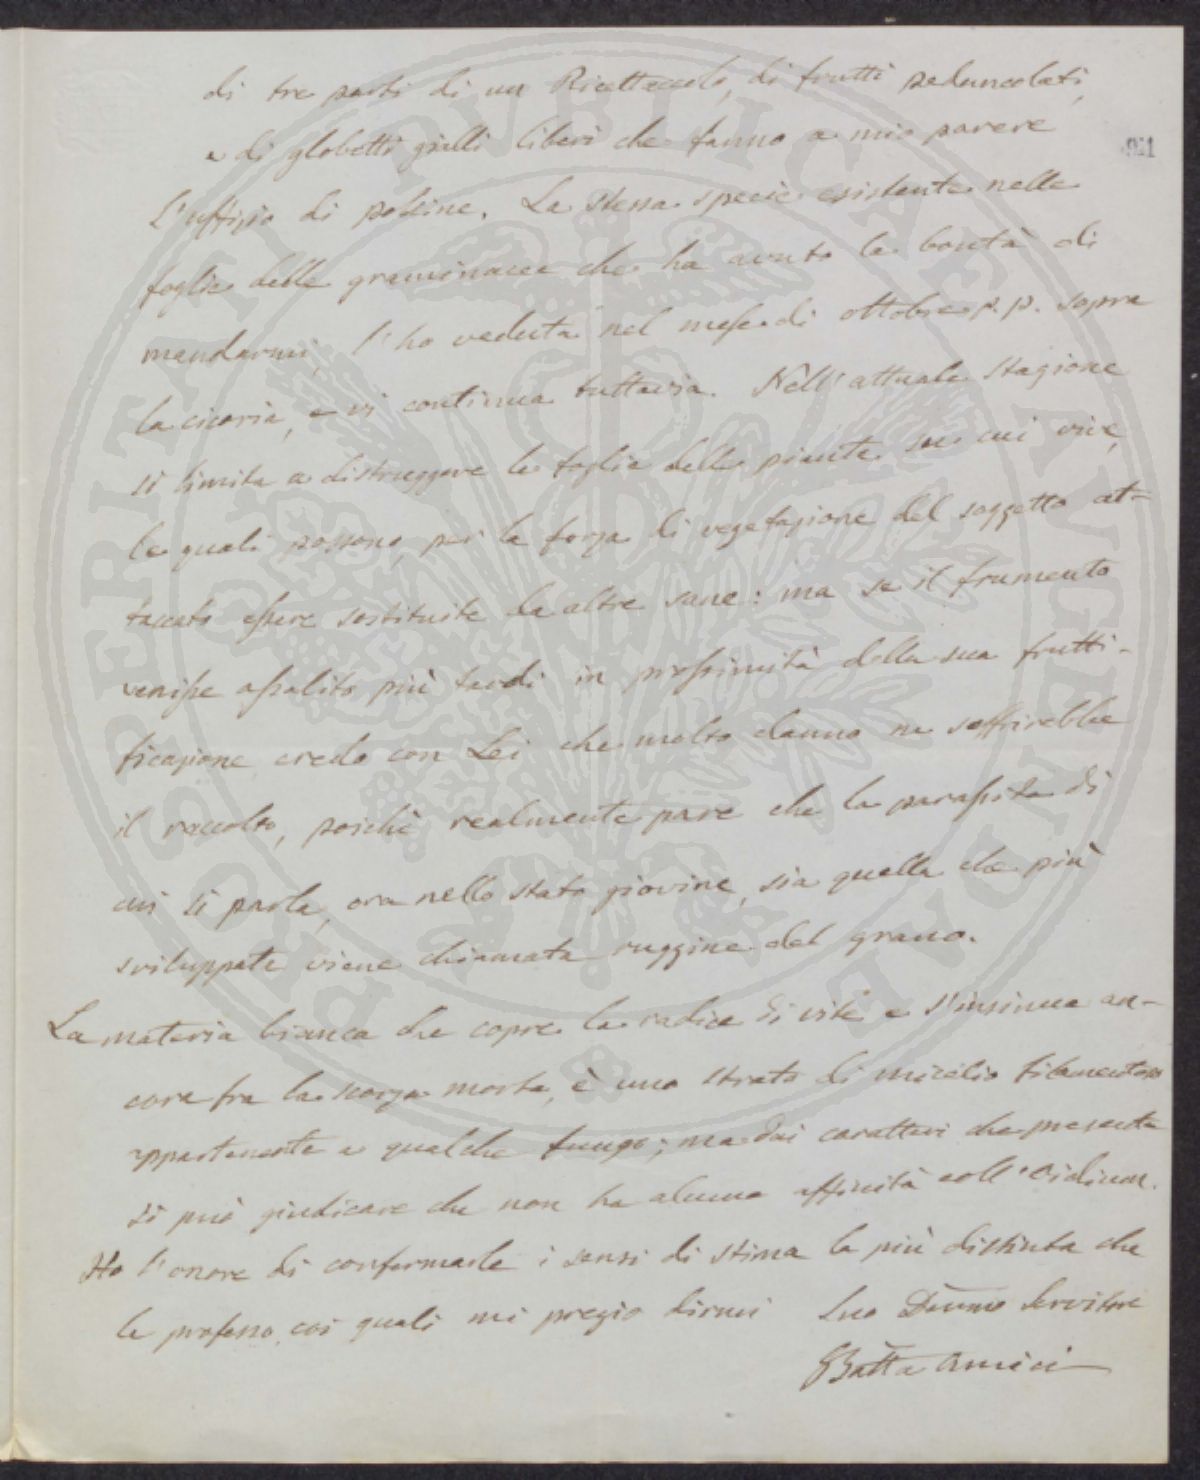 di tre parti di un Ricettaccolo, di frutti peduncolati,
e di globetti gialli liberi che fanno a mio parere
l'uffizio di polline. La stessa specie esistente nelle
foglie delle graminacee che ha avuto la bontà di
mandarmi, l'ho veduta nel mese di ottobre p.p. sopra
la cicoria, e vi continua tuttavia. Nell'attuale stagione
si limita a distruggere le foglie delle piante su cui vive,
le quali possono, per la forza di vegetazione del soggetto at-
taccato essere sostituite da altre sane: ma se il frumento
venisse assalito più tardi in prossimità della sua frutti-
ficazione credo con Lei che molto danno ne soffrirebbe
il raccolto, poichè realmente pare che la parassita di
cui si parla, ora nello stato giovine, sia quella che più
sviluppata viene chiamata ruggine del grano.
La materia bianca che copre la radice di vite e s'insinua an-
cora fra la scorza morta, è uno strato di micelio filamentoso
appartenente a qualche fungo; ma dai caratteri che presenta
si può giudicare che non ha alcuna affinità coll'Oidium.
Ho l'onore di confermarle i sensi di stima la più distinta che
le professo, coi quali mi pregio dirmi Suo Devmo Servitore
GBatta Amici
PROSPERITATI PVBLICAE AVGENDAE